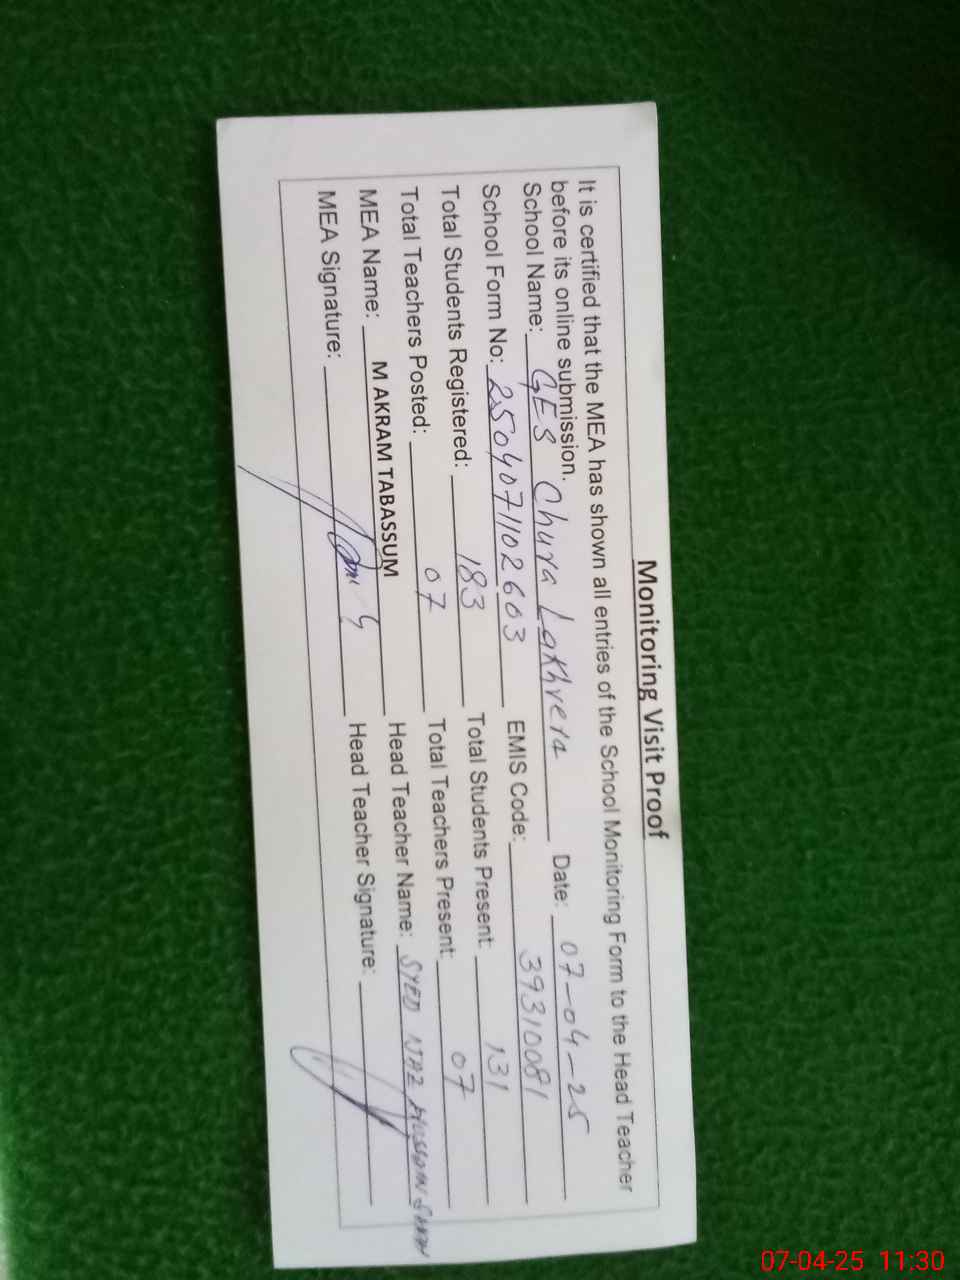 Monitoring Visit Proof
It is certified that the MEA has shown all entries of the School Monitoring Form to the Head Teacher
before its online submission.
School Name: GES Chura Lakhvera Date: 07-04-25
School Form No: 2504071102603 EMIS Code: 39310081
Total Students Registered: 183 Total Students Present: 131
Total Teachers Posted: 07 Total Teachers Present: 07
MEA Name: M AKRAM TABASSUM Head Teacher Name: SYED NAZ HUSSAIN SHAH
MEA Signature: Head Teacher Signature:
07-04-25 11:30